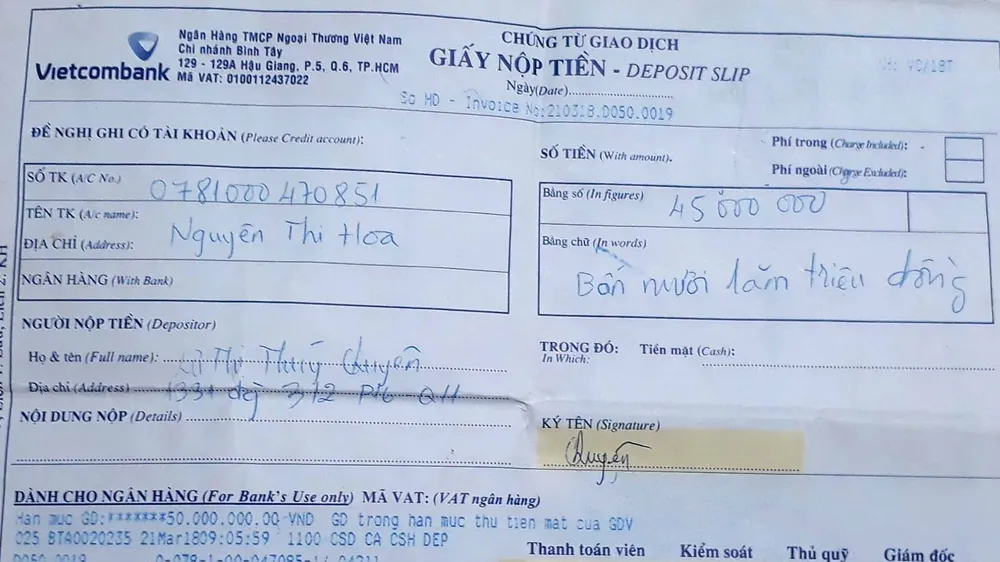 Vietcombank
Ngân Hàng TMCP Ngoại Thương Việt Nam
Chi nhánh Bình Tây
129 - 129A Hậu Giang, P.5, Q.6, TP.HCM
Mã VAT: 0100112437022
CHỨNG TỪ GIAO DỊCH
GIẤY NỘP TIỀN - DEPOSIT SLIP
Ngày(Date)
So HD - Invoice No:210318.0050.0019
ĐỀ NGHỊ GHI CÓ TÀI KHOẢN (Please Credit account):
SỐ TK (A/C No.) 0781000470851
TÊN TK (A/c name):
Nguyễn Thi Hoa
ĐỊA CHỈ (Address):
NGÂN HÀNG (With Bank)
SỐ TIỀN (With amount).
Phí trong (Charge Included):
Phí ngoài (Charge Excluded):
Bằng số (In figures) 45 000 000
Bằng chữ (In words)
Bốn mười lăm triệu đồng
NGƯỜI NỘP TIỀN (Depositor)
Họ & tên (Full name): Thị Thuý Quyên
Địa chỉ (Address) 3/2
NỘI DUNG NỘP (Details)
TRONG ĐÓ: Tiền mặt (Cash):
In Which:
KÝ TÊN (Signature)
Quyên
DÀNH CHO NGÂN HÀNG (For Bank's Use only) MÃ VAT: (VAT ngân hàng)
Han muc GD:*******50.000.000.00 VND GD trong han muc thu tien mat cua GDV
025 BTA0020235 21Mar1809:05:59 1100 CSD CA CSH DEP
Thanh toán viên Kiểm soát Thủ quỹ Giám đốc